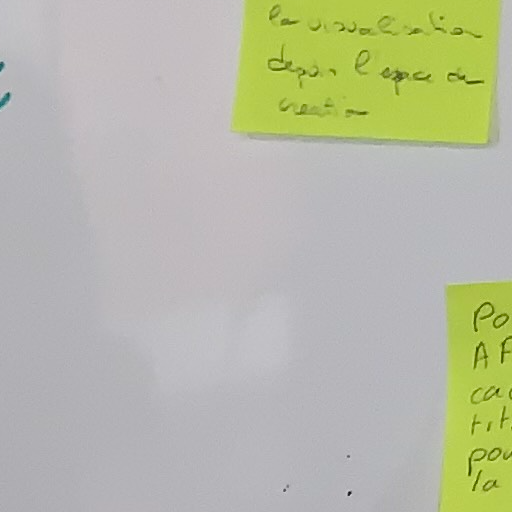 la visualisation
depuis l'espace de
creation
Po
AF
cad
tit
pou
la